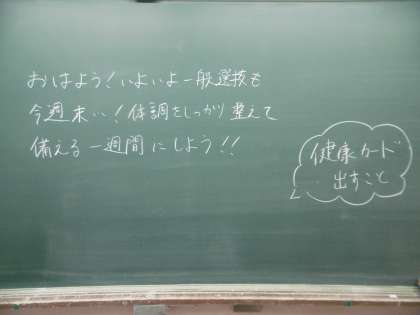 おはよう!いよいよ一般選抜も
今週末!体調をしっかり整えて
備える一週間にしよう!!
健康カード
出すこと